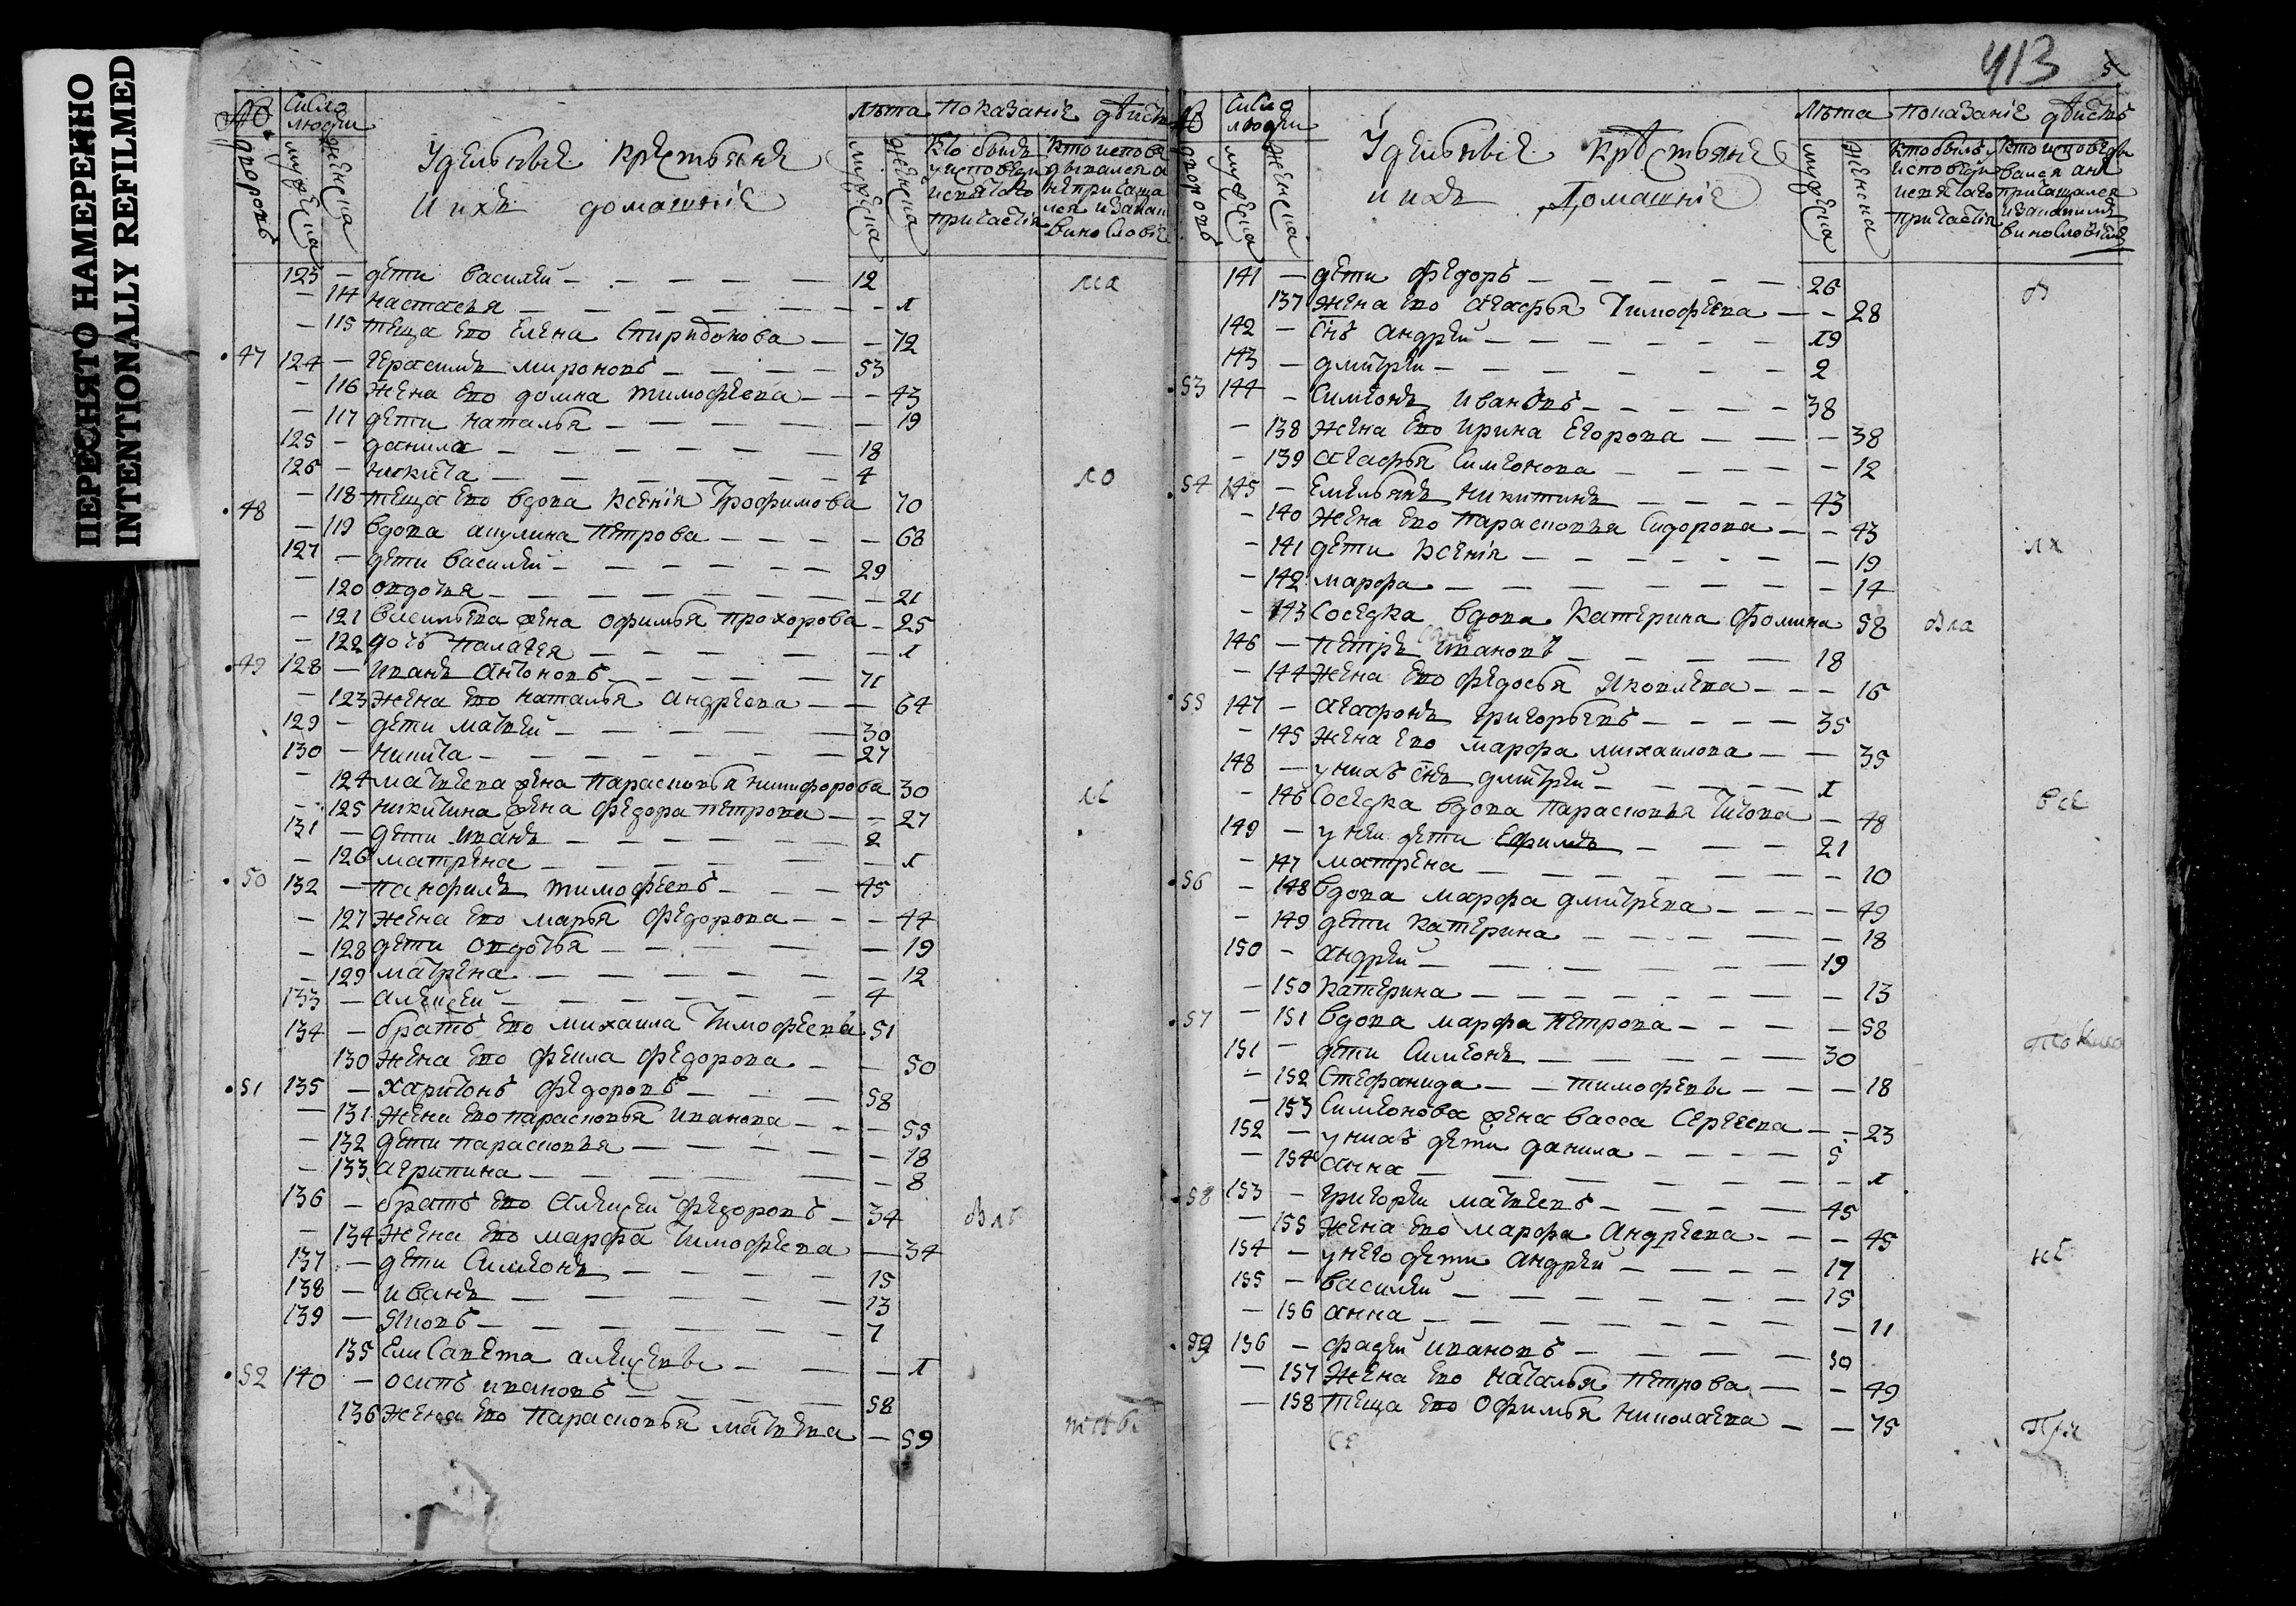 ПЕРЕСНЯТО НАМЕРЕННО
INTENTIONALLY REFILMED
№ дворовъ
Число люди
мужеска
женска
Удельныя крестьяня
и ихъ домашнiе
лѣта
мужеска
женска
показанiе дѣйств
кто былъ у исповеди и святаго причастiя
123 — дети василей — 12
— 114 настасья — 1
— 115 теща ево елена Спиридонова — 72
47 124 — герасимъ мироновъ — 53
— 116 жена ево домна тимофеева — 43
— 117 дети наталья — 19
125 — данила — 18
126 — никита — 4
— 118 теща ево вдова ксенiя Трофимова 70
48 — 119 вдова акулина петрова — 68
127 — дети василей — 29
— 120 овдотья — 21
— 121 васильева жена офимья прохорова — 25
— 122 дочь палагея — 1
49 128 — иванъ антоновъ — 71
— 123 жена ево наталья андреева — 64
129 — дети матвей — 30
130 — никита — 27
— 124 матвеева жена парасковья никифорова 30
— 125 никитина жена федора петрова — 27
131 — дети иванъ — 2
— 126 матрена — 1
50 132 — панфилъ тимофеевъ — 45
— 127 жена ево марья федорова — 44
— 128 дети овдотья — 19
— 129 матрена — 12
133 — алексей — 4
134 — братъ ево михаила тимофеевъ 51
130 жена ево фекла федорова — 50
51 135 — харитонъ федоровъ — 58
— 131 жена ево парасковья иванова — 55
— 132 дети парасковья — 18
— 133 агрипина — 8
136 — братъ ево алексей федоровъ — 34
— 134 жена ево марфа тимофеева — 34
137 — дети Симеонъ — 15
138 — иванъ — 13
139 — яковъ — 7
135 елисавета алексеевы — 1
52 140 — осипъ ивановъ — 58
136 жена ево парасковья матвеева — 59
413
5
№ дворовъ
Число люди
мужеска
женска
Удельныя крестьяня
и ихъ домашнiе
лѣта
мужеска
женска
показанiе дѣйствъ
кто былъ у исповеди и святаго причастiя
141 — дети федоръ — 26
137 жена ево агафья Тимофеева — 28
142 — снъ андрей — 19
143 — дмитрей — 2
53 144 — Симеонъ ивановъ — 38
— 138 жена ево ирина егорова — 38
— 139 агафья Симеонова — 12
54 145 — емельянъ никитинъ — 43
— 140 жена ево парасковья Сидорова — 43
— 141 дети ксенiя — 19
— 142 марфа — 14
— 143 Соседка вдова катерина фомина 58
146 — петръ ивановъ — 18
— 144 жена ево федосья яковлева — 16
55 147 — агафонъ григорьевъ — 35
— 145 жена ево марфа михаилова — 35
148 — у нихъ снъ дмитрей — 1
— 146 Соседка вдова парасковья Титова — 48
149 — у ней дети ефимъ — 21
— 147 матрена — 10
56 — 148 вдова марфа дмитрева — 49
— 149 дети катерина — 18
150 — андрей — 19
— 150 катерина — 13
57 — 151 вдова марфа петрова — 58
151 — дети Симеонъ — 30
— 152 Стефанида — тимофеевы — 18
— 153 Симеонова жена васса Сергеева — 23
152 — у нихъ дети данила — 5
— 154 анна — 1
58 153 — григорей матвеевъ — 45
— 155 жена ево марфа андреева — 45
154 — у него дети андрей — 17
155 — василей — 15
— 156 анна — 11
59 156 — фадей ивановъ — 50
— 157 жена ево наталья петрова — 49
— 158 теща ево офимья николаева — 75